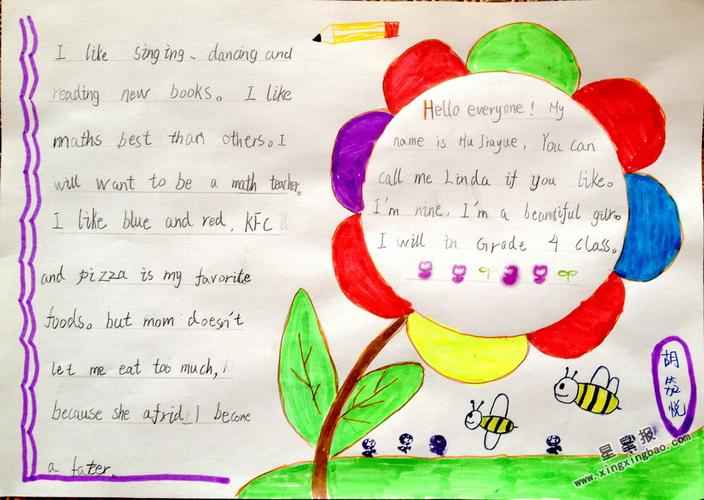 Hello everyone! My
name is Hu Jiayue, You can
call me Linda if you like.
I'm nine. I'm a beautiful gilr.
I will in Grade 4 class.
I like singing、dancing and
reading new books。I like
maths best than others。I
will want to be a math teacher.
I like blue and red. KFC
and pizza is my favorite
foods。but mom doesn't
let me eat too much,
because she afrid I become
a fater.
胡笳悦
星星报
www.xingxingbao.com